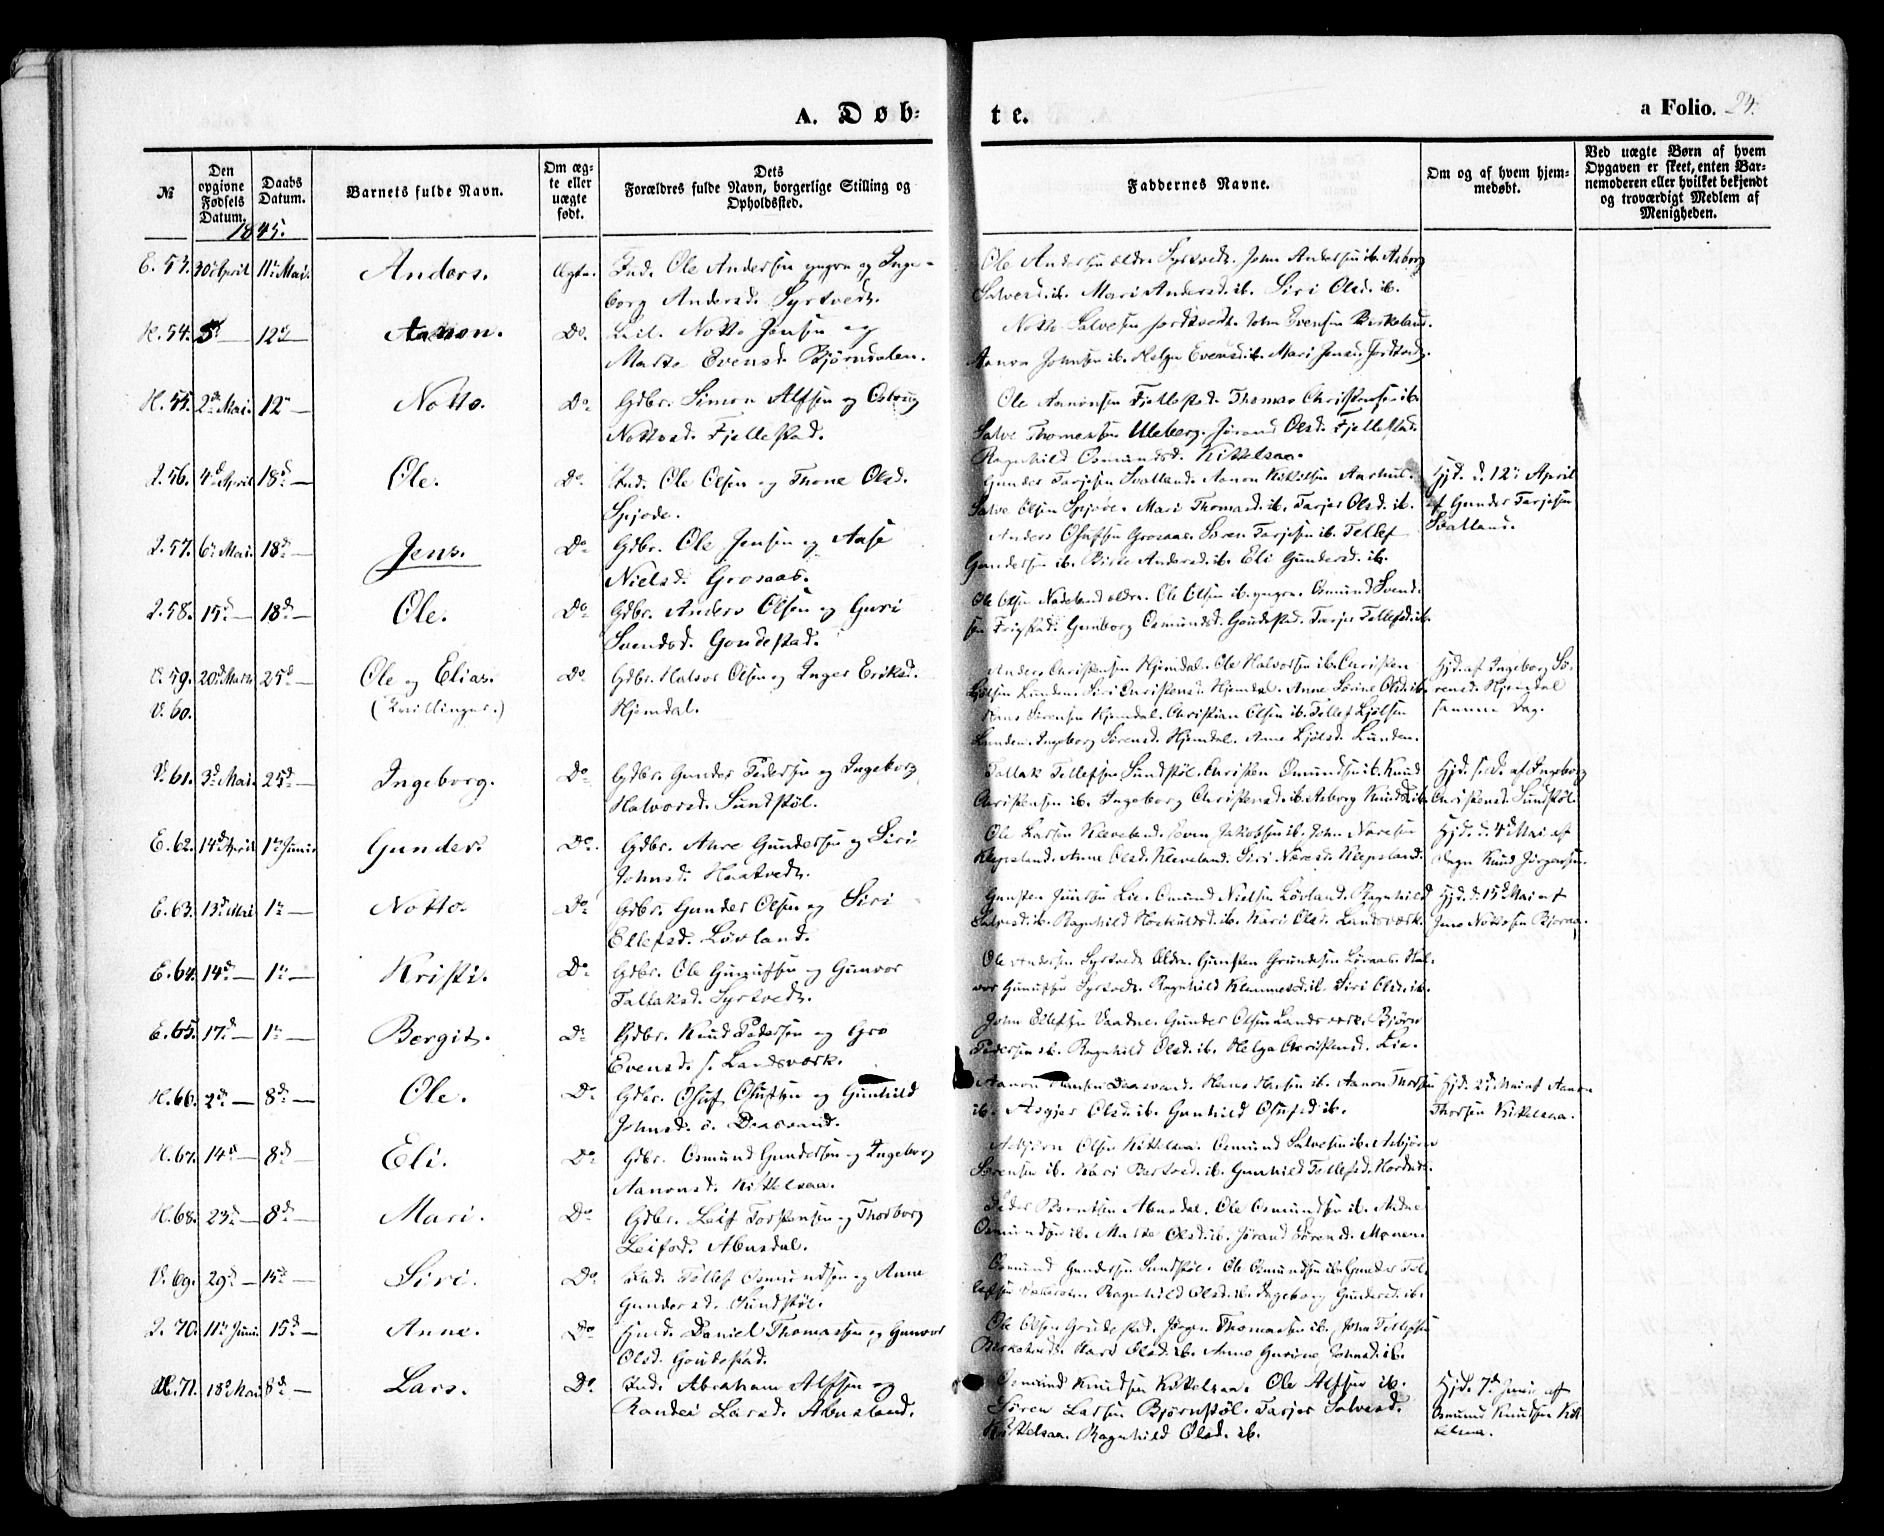 A. Døb-
te.
a Folio. 24.
№
Den opgivne Fødsels Datum.
Daabs Datum.
Barnets fulde Navn.
Om ægte eller uægte født.
Dets Forældres fulde Navn, borgerlige Stilling og Opholdssted.
Faddernes Navne.
Om og af hvem hjemmedøbt.
Ved uægte Børn af hvem Opgaven er skeet, enten Barnemoderen eller hvilket bekjendt og troværdigt Medlem af Menigheden.
1845.
E. 53. 30te April 11te Mai. Anders. Ægte. Ind. Ole Andersen yngre og Inge-
borg Andersd. Syrtvedt.
Ole Andersen eldre Syrtvedt. John Andersen ib. Asborg
Salvesd. ib. Mari Andersd. ib. Siri Olsd. ib.
H. 54. 5te — 12te — Aanon. Do. Notto Jensen og
Malte Evensd. Bjørndalen.
Notto Salvesen Jordtvedt. John Evensen Birkeland.
Aanon Johnsen ib. Helge Evensd. ib. Mari Jensd. Jordtvedt.
H. 55. 2den Mai. 12te — Notto. Do. Gdbr. Simon Alfsen og Osborg
Nottosd. Fjellestad.
Ole Aanonsen Fjellestad. Thomas Christensen ib.
Salve Thomassen Uleberg. Jørand Olsd. Fjellestad.
Ragnhild Osmundsd. Kittelsaa.
I. 56. 4de April 18de — Ole. Do. Ind. Ole Olsen og Thone Olsd.
Spjode.
Gunder Tarjesen Svatland. Aanon Kittelsen Aashus.
Salve Olsen Spjøde. Mari Thomasd. ib. Tarjer Olsd. ib.
Hjd. d. 12te April
af Gunder Tarjesen
Svatland.
I. 57. 6te Mai. 18de — Jens. Do. Gdbr. Ole Jensen og Aase
Nielsd. Grosaas.
Anders Olafsen Grosaas. Søren Tarjesen ib. Tellef
Gundersen ib. Birte Andersd. ib. Eli Gundersd. ib.
I. 58. 15de — 18de — Ole. Do. Gdbr. Anders Olsen og Guri
Svendsd. Goudestad.
Ole Olsen Nateland eldre. Ole Olsen ib. yngre. Osmund Svend-
sen Frigstad. Gunborg Osmundsd. Goudestad. Tarjer Tellefsd. ib.
V. 59. 20de Marts 25de — Ole og Elias. Do. Gdbr. Halvor Olsen og Inger Eriksd.
V. 60. (Tvillinger.) Hjemdal.
Anders Christensen Hjemdal. Ole Halvorsen ib. Christen
Ljølsen Lunden. Siri Christensd. Hjemdal. Anne Sørine Olsd. ib.
Hans Sørensen Hjemdal. Christian Olsen ib. Tellef Ljølsen
Lunden. Ingeborg Sørensd. Hjemdal. Anne Ljølsd. Lunden.
Hjd. af Ingeborg Sø-
rensd. Hjemdal
samme Dag.
V. 61. 3die Mai. 25de — Ingeborg. Do. Gdbr. Gunder Pedersen og Ingeborg
Halvorsd. Sundstøl.
Tallak Tellefsen Sundstøl. Christen Omundsen ib. Knud
Christensen ib. Ingeborg Christensd. ib. Asborg Knudsd. ib.
Hjd. s. D. af Ingeborg
Christensd. Sundstøl.
E. 62. 14de April 1te Juni. Gunder. Do. Gdbr. Aare Gundersen og Siri
Johnsd. Haatvedt.
Ole Larsen Kleveland. Even Jakobsen ib. John Naresen
Klepsland. Anne Olsd. Kleveland. Siri Naresd. Klepsland.
Hjd. d. 4de Mai af
Knud Jørgensen.
E. 63. 13de Mai 1te — Notto. Do. Gdbr. Gunder Olsen og Siri
Ellefsd. Løvland.
Gunsten Lie. Omund Nielsen Løvland. Ragnhild
Salvesd. ib. Ragnhild Hoskuldsd. ib. Kari Olsd. Landsværk.
Hjd. d. 15de Mai af
Jens Nottosen Bjoraa.
E. 64. 14de — 1te — Kristi. Do. Gdbr. Ole Gunufsen og Gunvor
Tallaksd. Syrtvedt.
Ole Andersen Syrtvedt eldre. Gunsten Grundesen Løvaas. Hal-
vor Gunufsen Syrtvedt. Ragnhild Klemmesd. ib. Siri Olsd. ib.
E. 65. 17de — 1te — Bergit. Do. Gdbr. Knud Pedersen og Gro
Evensd. s. Landsværk.
John Ellefsen Vaadne. Gunder Olsen Landsværk. Bjørn
Pedersen ib. Ragnhild Olsd. ib. Helga Christensd. Lie.
H. 66. 2den — 8de — Ole. Do. Gdbr. Oluf Olufsen og Gunhild
Johnsd. s. Daasvand.
Aanon Hansen Daasvand. Hans Hansen ib. Aanon Thorsen
ib. Asgjer Olsd. ib. Gunhild Olufsd. ib.
Hjd. 2den Mai af Aanon
Thorsen Kittelsaa.
H. 67. 14de — 8de — Eli. Do. Gdbr. Osmund Gundersen og Ingeborg
Aanonsd. Kittelsaa.
Asbjørn Olsen Kittelsaa. Osmund Salvesen ib. Asbjørn
Sørensen ib. Kari Bertsd. ib. Gunhild Tellefsd.
H. 68. 23de — 8de — Mari. Do. Gdbr. Leif Torstensen og Thorborg
Leifsd. Abusdal.
Peder Berntsen Abusdal. Ole Osmundsen ib. Andne
Osmundsen ib. Malte Olsd. ib. Jørand Sørensd. Monen.
V. 69. 29de — 15de — Siri. Do. Ind. Tellef Osmundsen og Anne
Gundersd. Sundstøl.
Osmund Gundersen Sundstøl. Ole Osmundsen ib. Gunder Tel-
lefsen Ragnhild Olsd. ib. Ingeborg Gundersd. ib.
I. 70. 11te Juni. 15de — Anne. Do. Daniel Thomassen og Gunvor
Olsd. Goudestad.
Ole Olsen Goudestad. Jørgen Thomassen ib. John Tellefsen
Birketvedt. Kari Olsd. ib. Anne Gurine Johnsd. ib.
H. 71. 18de Mai 8de — Lars. Do. Ind. Abraham Alfsen og
Randei Larsd. Abusland.
Osmund Knudsen Kittelsaa. Ole Alfsen ib.
Søren Larsen Bjørnstøl. Tarjer Salvesd.
Kittelsaa. Ragnhild Olsd. ib.
Hjd. 7de Juni af
Osmund Knudsen Kit-
telsaa.